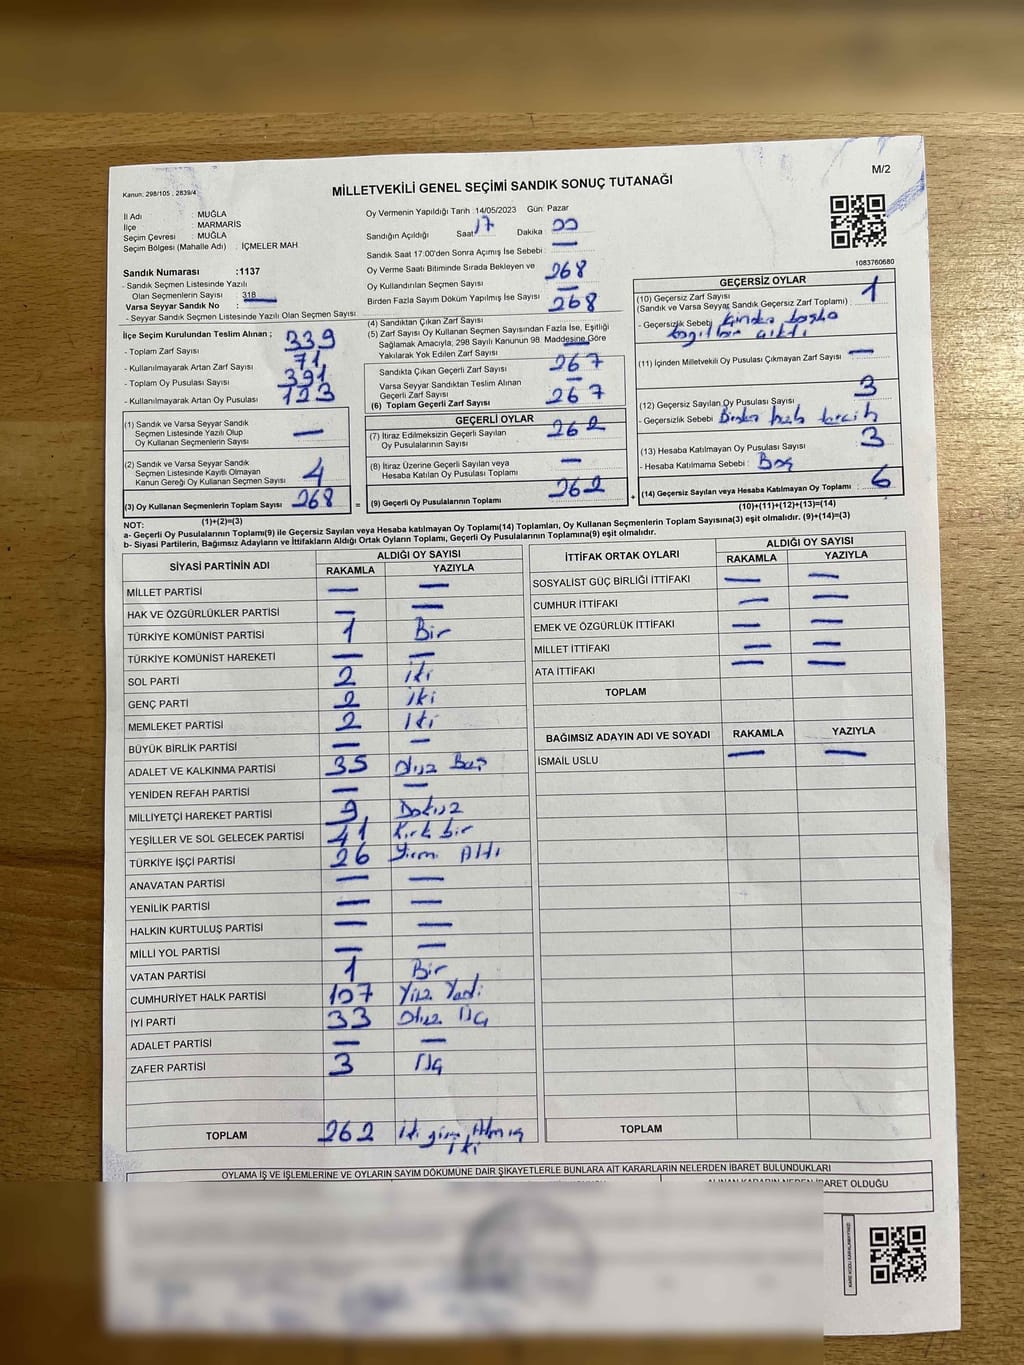 Kanun: 298/105 ; 2839/4
M/2
MİLLETVEKİLİ GENEL SEÇİMİ SANDIK SONUÇ TUTANAĞI
İl Adı : MUĞLA
İlçe : MARMARİS
Seçim Çevresi : MUĞLA
Seçim Bölgesi (Mahalle Adı) : İÇMELER MAH
Sandık Numarası :1137
- Sandık Seçmen Listesinde Yazılı
Olan Seçmenlerin Sayısı : 318
Varsa Seyyar Sandık No :
- Seyyar Sandık Seçmen Listesinde Yazılı Olan Seçmen Sayısı :
Oy Vermenin Yapıldığı Tarih :14/05/2023 Gün: Pazar
Sandığın Açıldığı Saat 17 Dakika 00
Sandık Saat 17:00'den Sonra Açımış İse Sebebi : —
Oy Verme Saati Bitiminde Sırada Bekleyen ve
Oy Kullandırılan Seçmen Sayısı 268
Birden Fazla Sayım Döküm Yapılmış İse Sayısı —
1083760680
İlçe Seçim Kurulundan Teslim Alınan ;
- Toplam Zarf Sayısı 339
- Kullanılmayarak Artan Zarf Sayısı 71
- Toplam Oy Pusulası Sayısı 391
- Kullanılmayarak Artan Oy Pusulası 123
(1) Sandık ve Varsa Seyyar Sandık
Seçmen Listesinde Yazılı Olup
Oy Kullanan Seçmenlerin Sayısı —
(2) Sandık ve Varsa Seyyar Sandık
Seçmen Listesinde Kayıtlı Olmayan
Kanun Gereği Oy Kullanan Seçmen Sayısı 4
(3) Oy Kullanan Seçmenlerin Toplam Sayısı 268 =
(1)+(2)=(3)
(4) Sandıktan Çıkan Zarf Sayısı 268
(5) Zarf Sayısı Oy Kullanan Seçmen Sayısından Fazla İse, Eşitliği
Sağlamak Amacıyla, 298 Sayılı Kanunun 98. Maddesine Göre
Yakılarak Yok Edilen Zarf Sayısı —
Sandıkta Çıkan Geçerli Zarf Sayısı 267
Varsa Seyyar Sandıktan Teslim Alınan
Geçerli Zarf Sayısı —
(6) Toplam Geçerli Zarf Sayısı 267
GEÇERLİ OYLAR
(7) İtiraz Edilmeksizin Geçerli Sayılan
Oy Pusulalarının Sayısı 262
(8) İtiraz Üzerine Geçerli Sayılan veya
Hesaba Katılan Oy Pusulası Toplamı —
(9) Geçerli Oy Pusulalarının Toplamı 262 +
GEÇERSİZ OYLAR
(10) Geçersiz Zarf Sayısı
(Sandık ve Varsa Seyyar Sandık Geçersiz Zarf Toplamı) : 1
- Geçersizlik Sebebi : içinden başka
çıktı
(11) İçinden Milletvekili Oy Pusulası Çıkmayan Zarf Sayısı : —
(12) Geçersiz Sayılan Oy Pusulası Sayısı : 3
- Geçersizlik Sebebi : Birden fazla tercih
(13) Hesaba Katılmayan Oy Pusulası Sayısı : 3
- Hesaba Katılmama Sebebi : Boş
(14) Geçersiz Sayılan veya Hesaba Katılmayan Oy Toplamı : 6
(10)+(11)+(12)+(13)=(14)
NOT:
a- Geçerli Oy Pusulalarının Toplamı(9) ile Geçersiz Sayılan veya Hesaba katılmayan Oy Toplamı(14) Toplamları, Oy Kullanan Seçmenlerin Toplam Sayısına(3) eşit olmalıdır. (9)+(14)=(3)
b- Siyasi Partilerin, Bağımsız Adayların ve İttifakların Aldığı Ortak Oyların Toplamı, Geçerli Oy Pusulalarının Toplamına(9) eşit olmalıdır.
SİYASİ PARTİNİN ADI ALDIĞI OY SAYISI
RAKAMLA YAZIYLA
MİLLET PARTİSİ — —
HAK VE ÖZGÜRLÜKLER PARTİSİ — —
TÜRKİYE KOMÜNİST PARTİSİ 1 Bir
TÜRKİYE KOMÜNİST HAREKETİ — —
SOL PARTİ 2 iki
GENÇ PARTİ 2 iki
MEMLEKET PARTİSİ 2 iki
BÜYÜK BİRLİK PARTİSİ — —
ADALET VE KALKINMA PARTİSİ 35 Otuz Beş
YENİDEN REFAH PARTİSİ — —
MİLLİYETÇİ HAREKET PARTİSİ 9 Dokuz
YEŞİLLER VE SOL GELECEK PARTİSİ 41 Kırk bir
TÜRKİYE İŞÇİ PARTİSİ 26 Yirmi Altı
ANAVATAN PARTİSİ — —
YENİLİK PARTİSİ — —
HALKIN KURTULUŞ PARTİSİ — —
MİLLİ YOL PARTİSİ — —
VATAN PARTİSİ 1 Bir
CUMHURİYET HALK PARTİSİ 107 Yüz Yedi
İYİ PARTİ 33 Otuz Üç
ADALET PARTİSİ — —
ZAFER PARTİSİ 3 Üç
TOPLAM 262 iki yüz Altmış
iki
İTTİFAK ORTAK OYLARI ALDIĞI OY SAYISI
RAKAMLA YAZIYLA
SOSYALİST GÜÇ BİRLİĞİ İTTİFAKI — —
CUMHUR İTTİFAKI — —
EMEK VE ÖZGÜRLÜK İTTİFAKI — —
MİLLET İTTİFAKI — —
ATA İTTİFAKI — —
TOPLAM
BAĞIMSIZ ADAYIN ADI VE SOYADI RAKAMLA YAZIYLA
İSMAİL USLU — —
TOPLAM
OYLAMA İŞ VE İŞLEMLERİNE VE OYLARIN SAYIM DÖKÜMÜNE DAİR ŞİKAYETLERLE BUNLARA AİT KARARLARIN NELERDEN İBARET BULUNDUKLARI
ALINAN KARARIN NEDEN İBARET OLDUĞU
KARE KODU KARALAMAYINIZ!